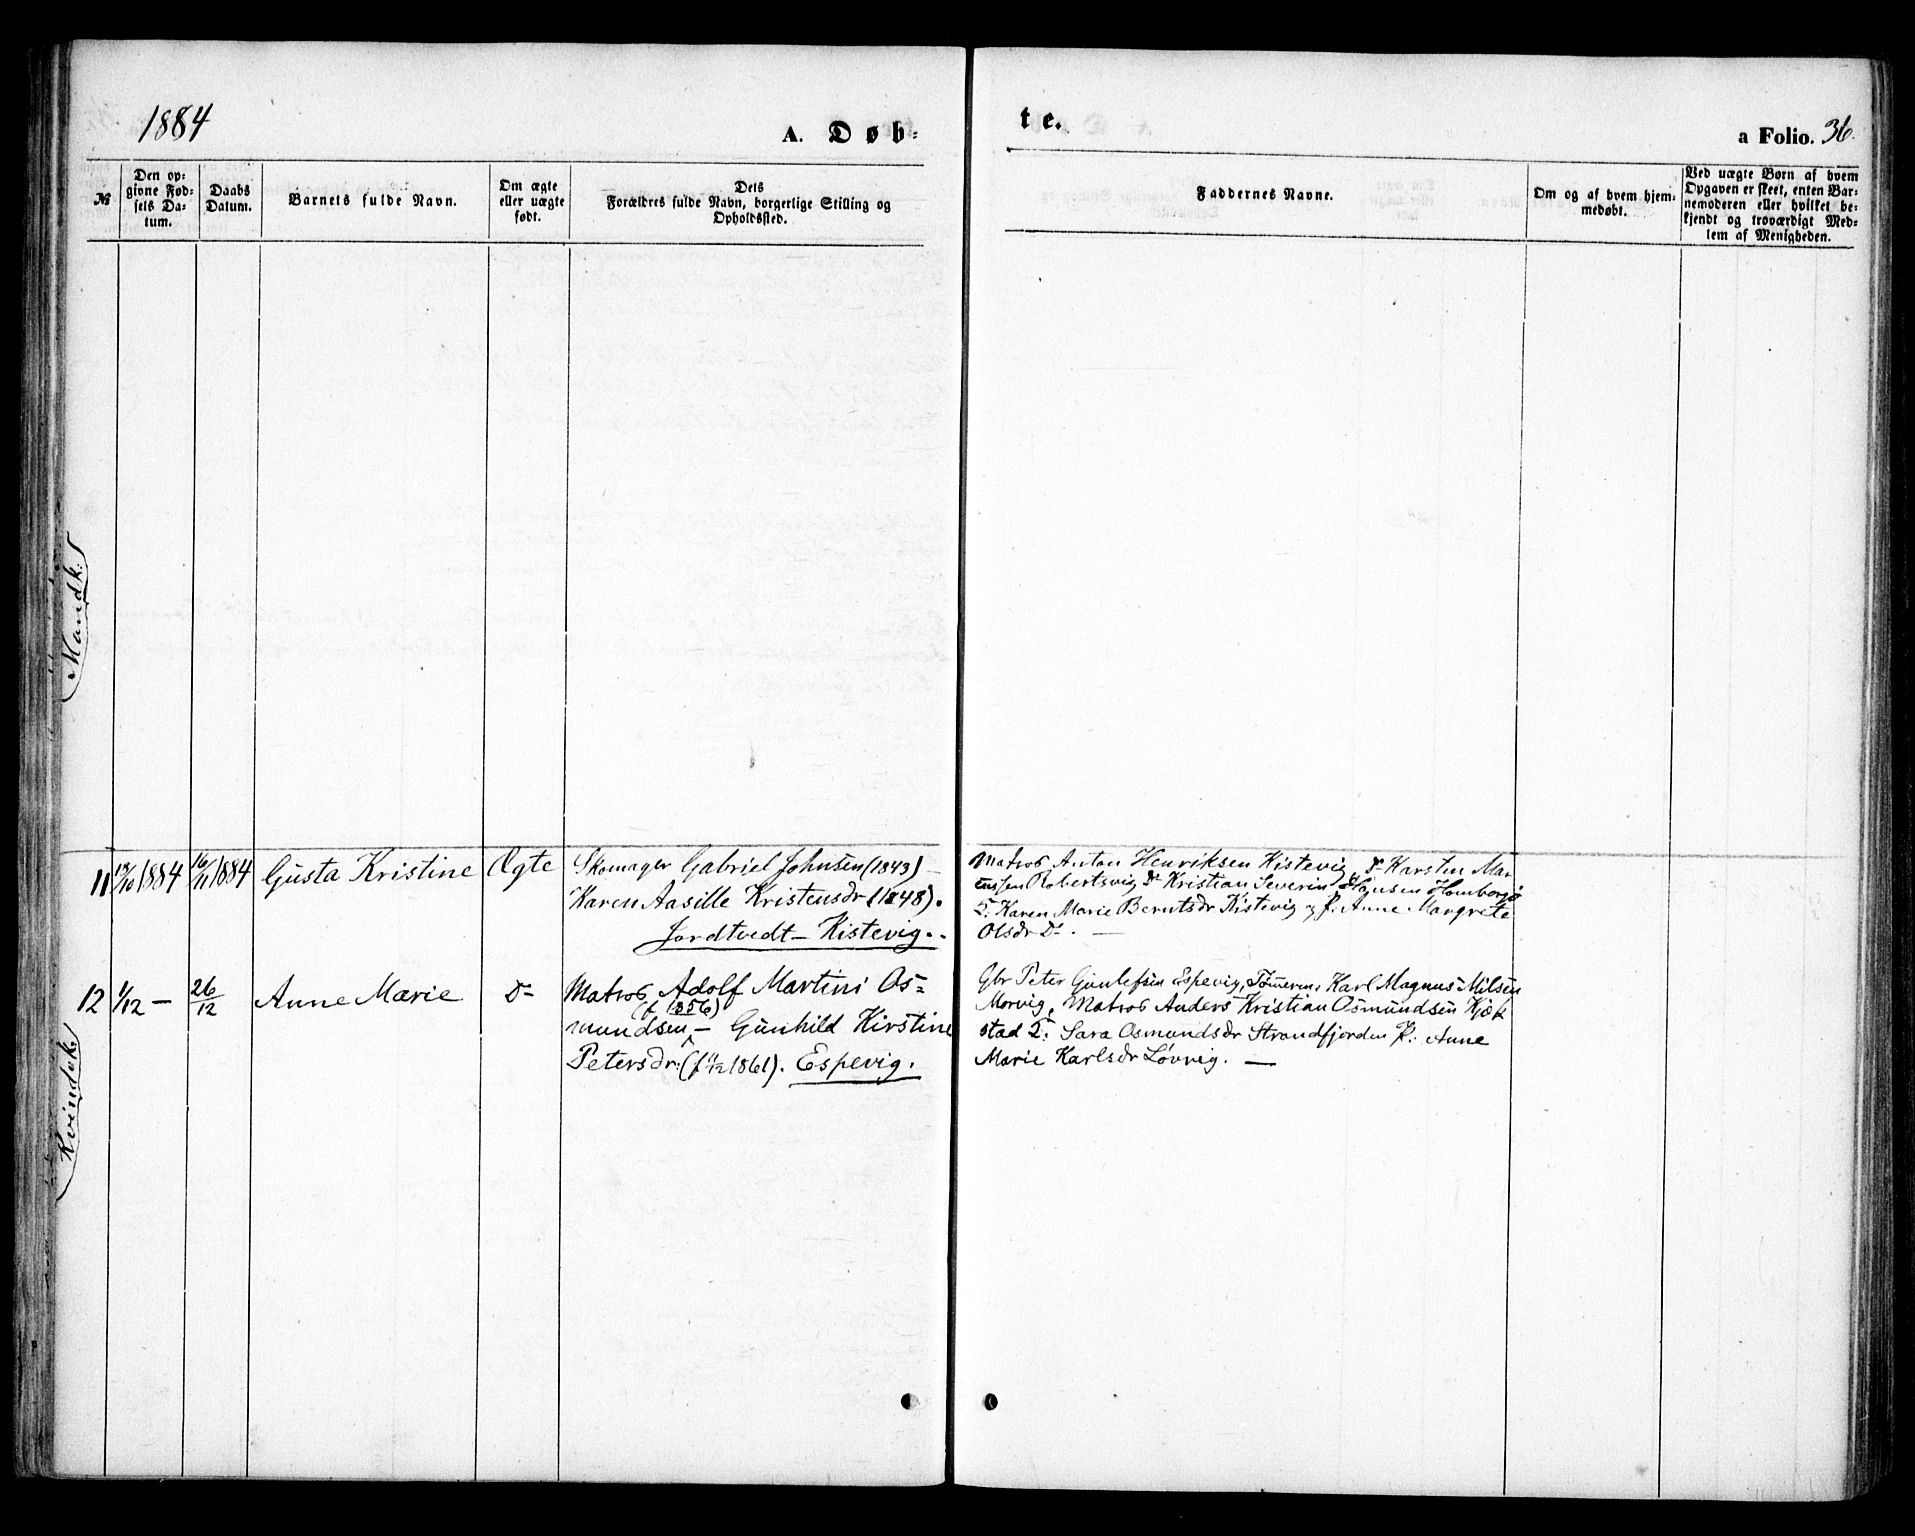 1884
A. Døb-
te.
a Folio. 36.
№
Den op-
givne Fød-
sels Da-
tum.
Daabs
Datum.
Barnets fulde Navn.
Om ægte
eller uægte
født.
Dets
Forældres fulde Navn, borgerlige Stilling og
Opholdssted.
Faddernes Navne.
Om og af hvem hjem-
medøbt.
Ved uægte Børn af hvem
Opgaven er skeet, enten Bar-
nemoderen eller hvilket be-
kjendt og troværdigt Med-
lem af Menigheden.
Mandk:
11 13/10 1884 16/11 1884 Gusta Kristine Ægte
Skomager Gabriel Johnsen (1843) —
Karen Aasille Kristensdr (1848).
Jordtvedt — Kistevig.
Matros Anton Henriksen Kistevig, Do Karsten Mar
Robertsvig, Do Kristian Severin Homborg
T: Karen Marie Berntsdr Kistevig og P. Anne Margrete
Olsdr Do. —
Kvindek:
12 1/12 — 26/12 Anne Marie Do
Matros Adolf Martini Os-
(f 1856)
mundsen — Gunhild Kirstine
Petersdr: (f 1/12 1861). Espevig.
Gbr Peter Gunlefsen Espevig, Tømmerm. Karl Magnus Nilsen
Morvig, Matros Anders Kristian Osmundsen Kjæk
stad T: Sara Osmundsdr Strandfjorden P: Anne
Marie Karlsdr Løvvig. —